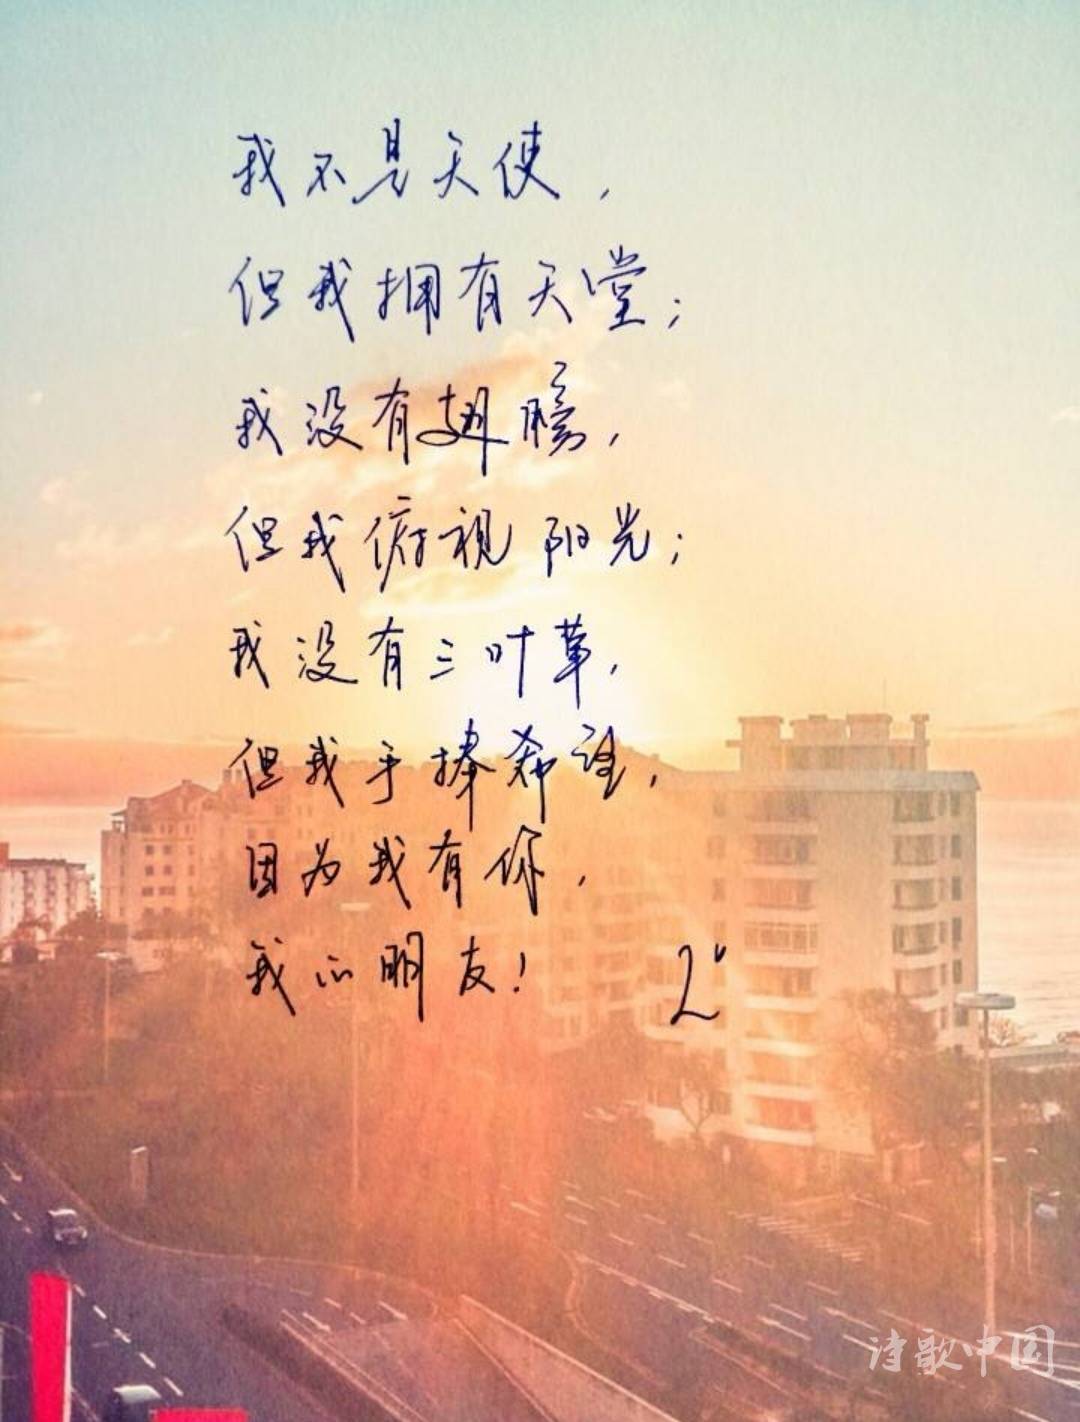 我不是天使，
但我拥有天堂；
我没有翅膀，
但我俯视阳光；
我没有三叶草，
但我手捧希望，
因为我有你，
我的朋友！
诗歌中国